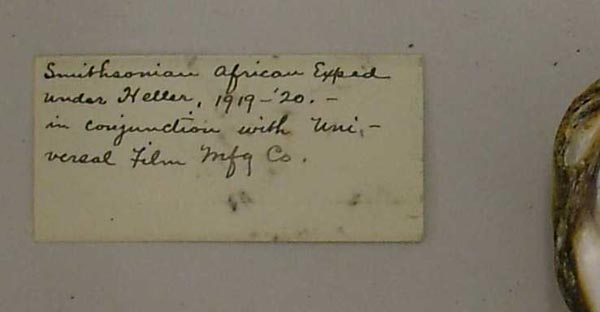 Smithsonian African Exped
under Heller, 1919-'20.-
in conjunction with Uni,-
versal Film Mfg Co.